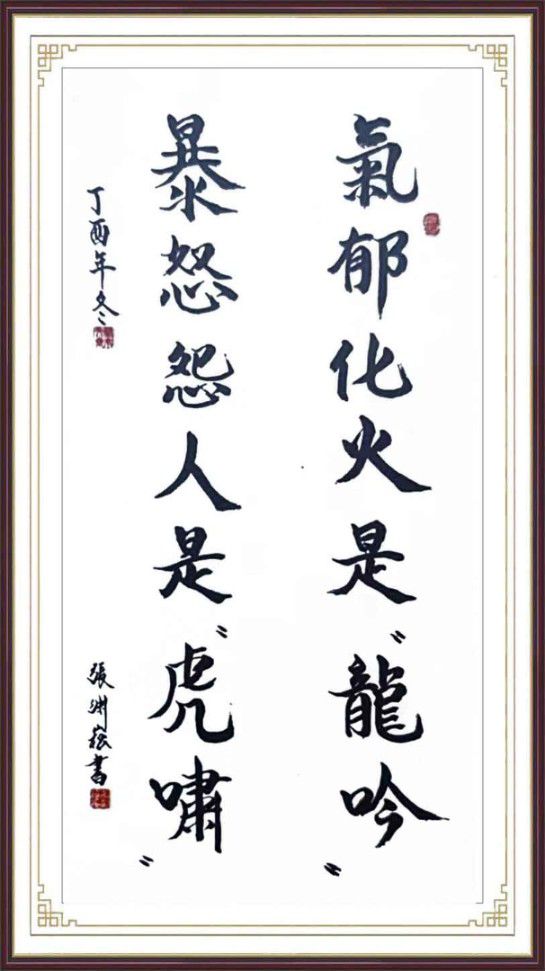 氣郁化火是“龍吟”
暴怒怨人是“虎嘯”
丁酉年冬
張洲崧書